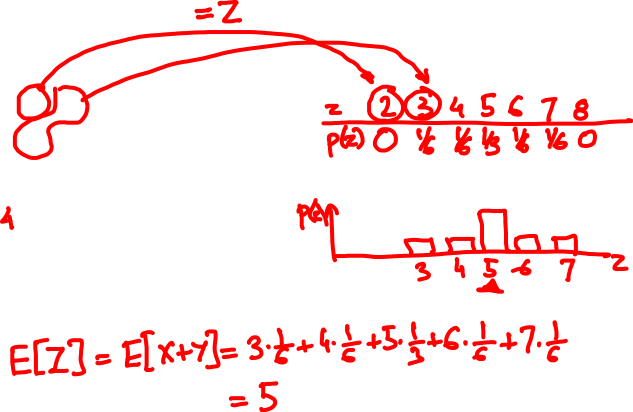 = Z
z 2 3 4 5 6 7 8
p(z) 0 1/6 1/6 1/3 1/6 1/6 0
4
p(z)
3 4 5 6 7 z
E[Z] = E[X+Y] = 3·1/6 + 4·1/6 + 5·1/3 + 6·1/6 + 7·1/6
= 5